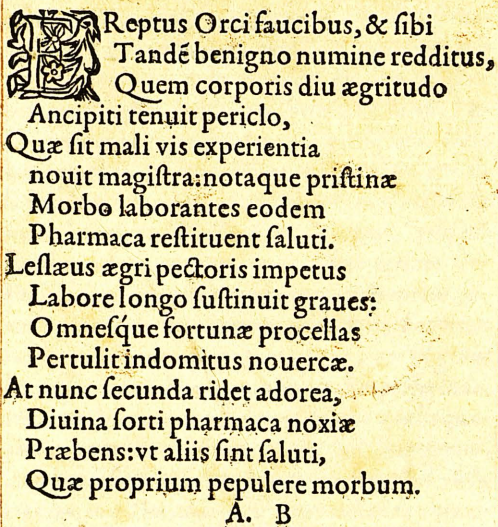 EReptus Orci faucibus, & ſibi
Tandē benigno numine redditus,
Quem corporis diu ægritudo
Ancipiti tenuit periclo,
Quæ ſit mali vis experientia
nouit magiſtra: notaque priſtinæ
Morbo laborantes eodem
Pharmaca reſtituent ſaluti.
Leſlæus ægri pectoris impetus
Labore longo ſuſtinuit graues:
Omneſq́ue fortunæ procellas
Pertulit indomitus nouercæ.
At nunc ſecunda ridet adorea,
Diuina ſorti pharmaca noxiæ
Præbens: vt aliis ſint ſaluti,
Quæ proprium pepulere morbum.
A. B